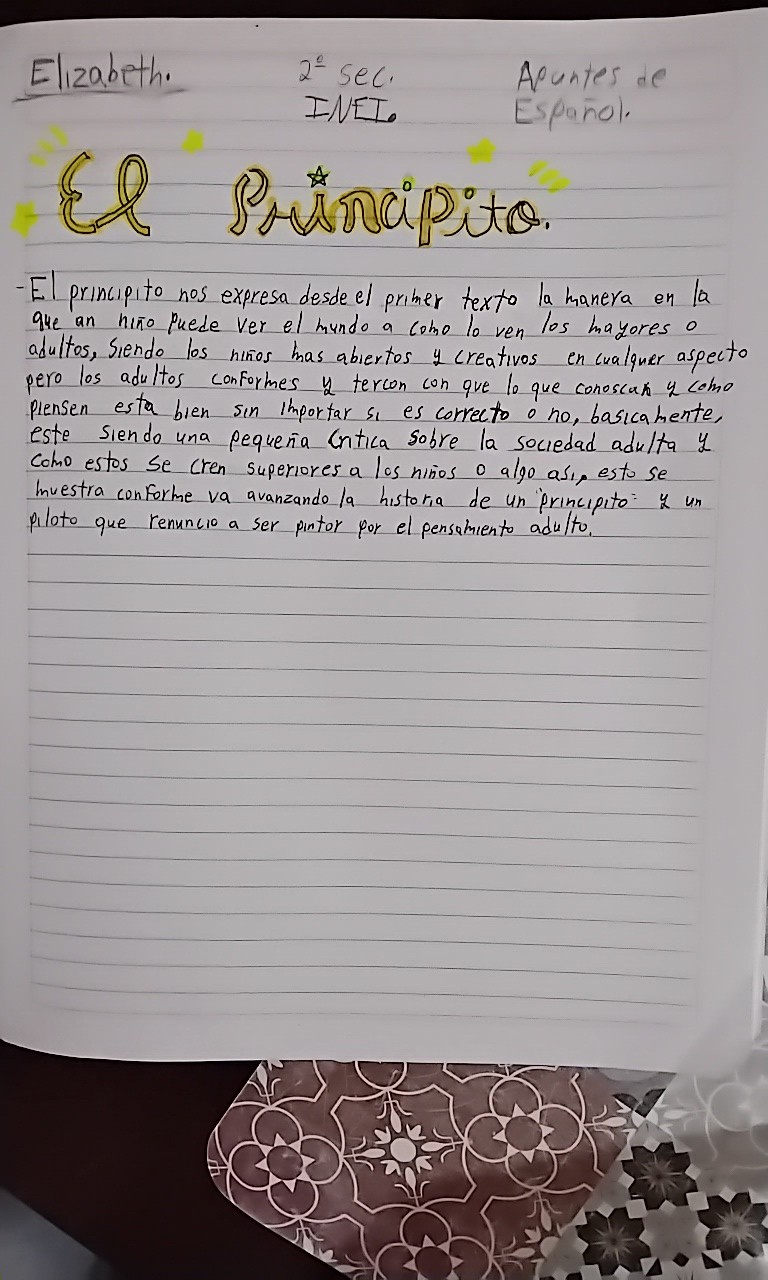 Elizabeth. 2º sec. Apuntes de
INEI. Español.
El Principito.
- El principito nos expresa desde el primer texto la manera en la
que an niño puede ver el mundo a como lo ven los mayores o
adultos, siendo los niños mas abiertos y creativos en cualquer aspecto
pero los adultos conformes y tercon con que lo que conoscan y como
piensen esta bien sin importar si es correcto o no, basicamente,
este siendo una pequeña critica sobre la sociedad adulta y
como estos se cren superiores a los niños o algo asi, esto se
muestra conforme va avanzando la historia de un "principito" y un
piloto que renuncio a ser pintor por el pensamiento adulto.